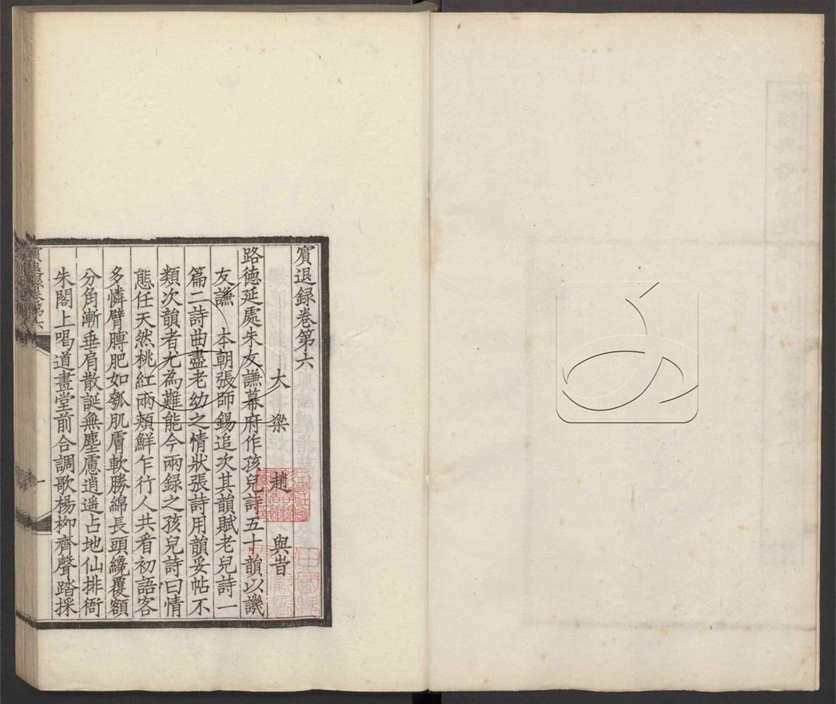 賓退録卷第六
大梁 趙 與旹
路德延處朱友謙幕府作孩兒詩五十韻以譏
友謙 本朝張師錫追次其韻賦老兒詩一
篇二詩曲盡老幼之情狀張詩用韻妥帖不
類次韻者尤為難能今兩録之孩兒詩曰情
態任天然桃紅兩頰鮮乍行人共看初語客
多憐臂膊肥如瓠肌膚軟勝綿長頭纔覆額
分角漸垂肩散誕無塵慮逍遥占地仙排衙
朱閣上唱道畫堂前合調歌楊柳齊聲踏採